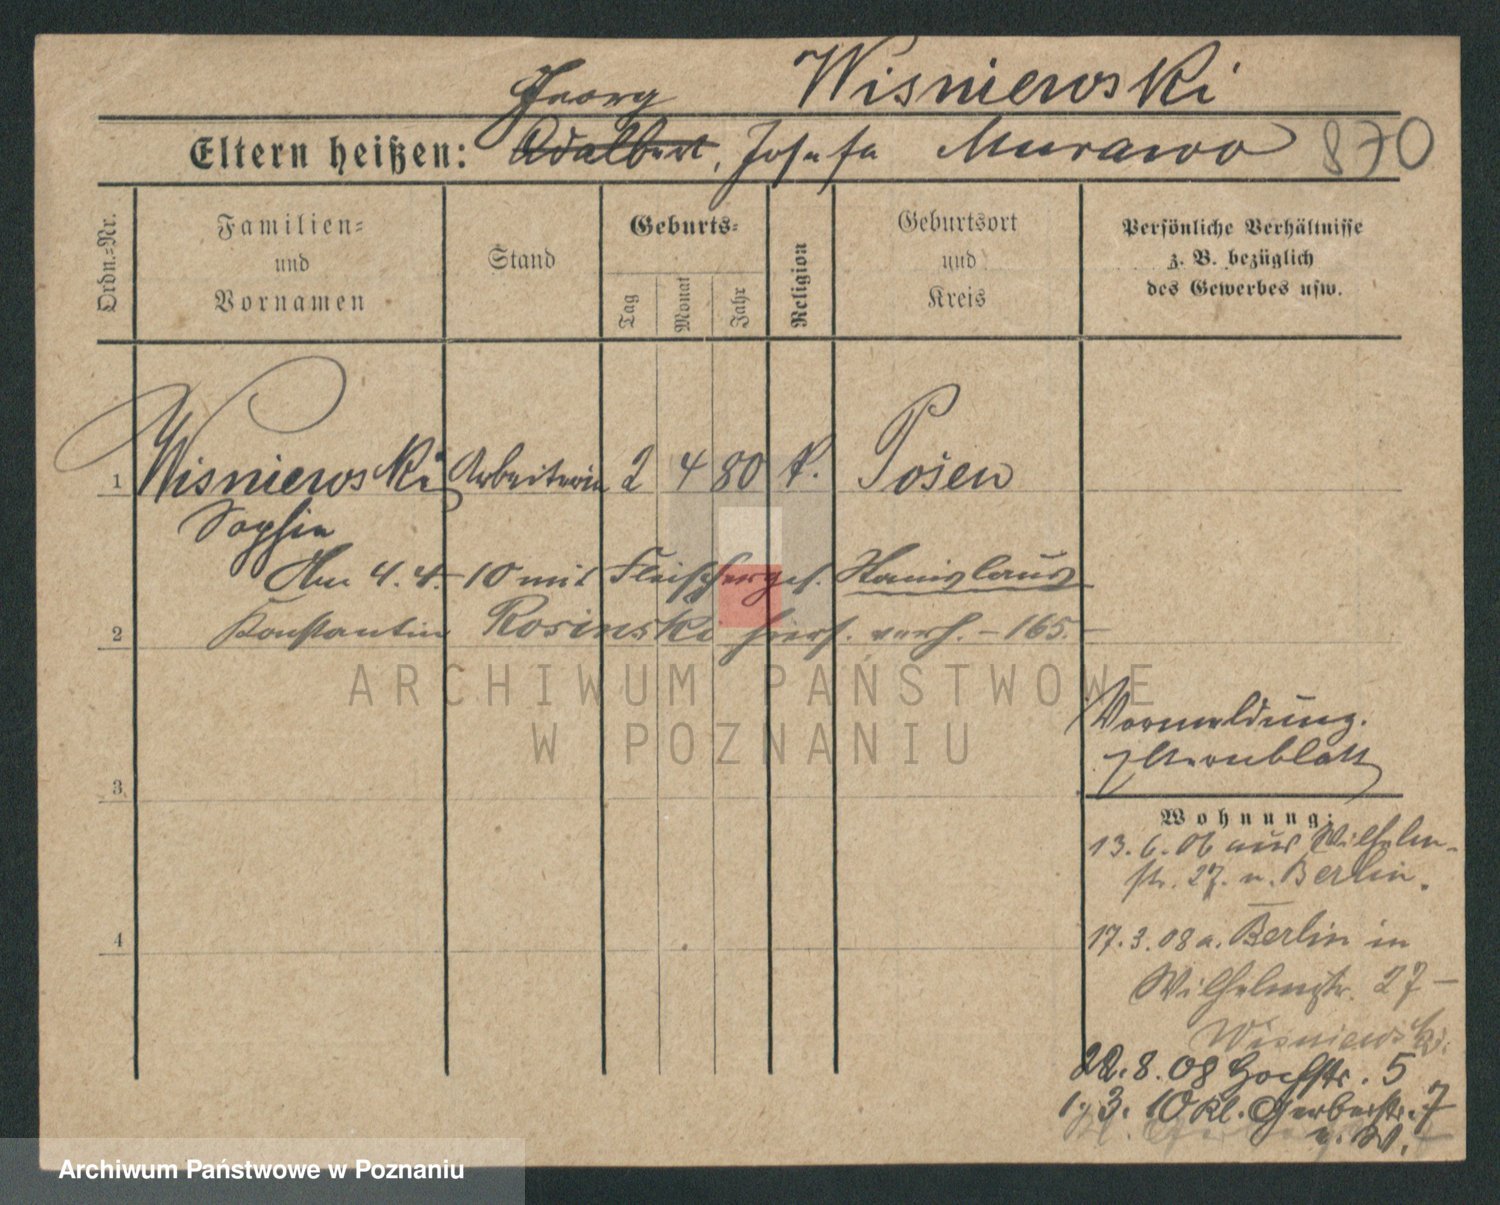 Georg Wisniewski
Eltern heißen: Adalbert, Josefa Murawa 870
Ordn.=Nr.
Familien=
und
Vornamen
Stand
Geburts=
Tag
Monat
Jahr
Religion
Geburtsort
und
Kreis
Persönliche Verhältnisse
z. B. bezüglich
des Gewerbes usw.
1 Wisniewski Arbeiterin 2 4 80 k. Posen
Sophie
Am 4. 4. 10 mit Fleischerges. Stanislaus
2 Konstantin Rosinski hiers. verh. – 165. –
ARCHIWUM PAŃSTWOWE
W POZNANIU
Vormeldung.
Elternblatt
3
Wohnung:
13. 6. 06 aus Wilhelm-
str. 27. n. Berlin.
4
17. 3. 08 a. Berlin in
Wilhelmstr. 27 –
Wisniewski.
22. 8. 08 Hochstr. 5
1. 3. 10 Kl. Gerberstr. 7
Archiwum Państwowe w Poznaniu